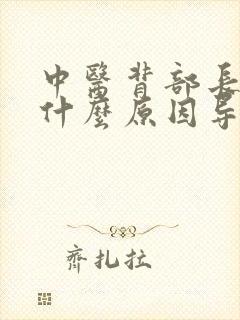 中醫背部長
什麼原因导
齊扎拉